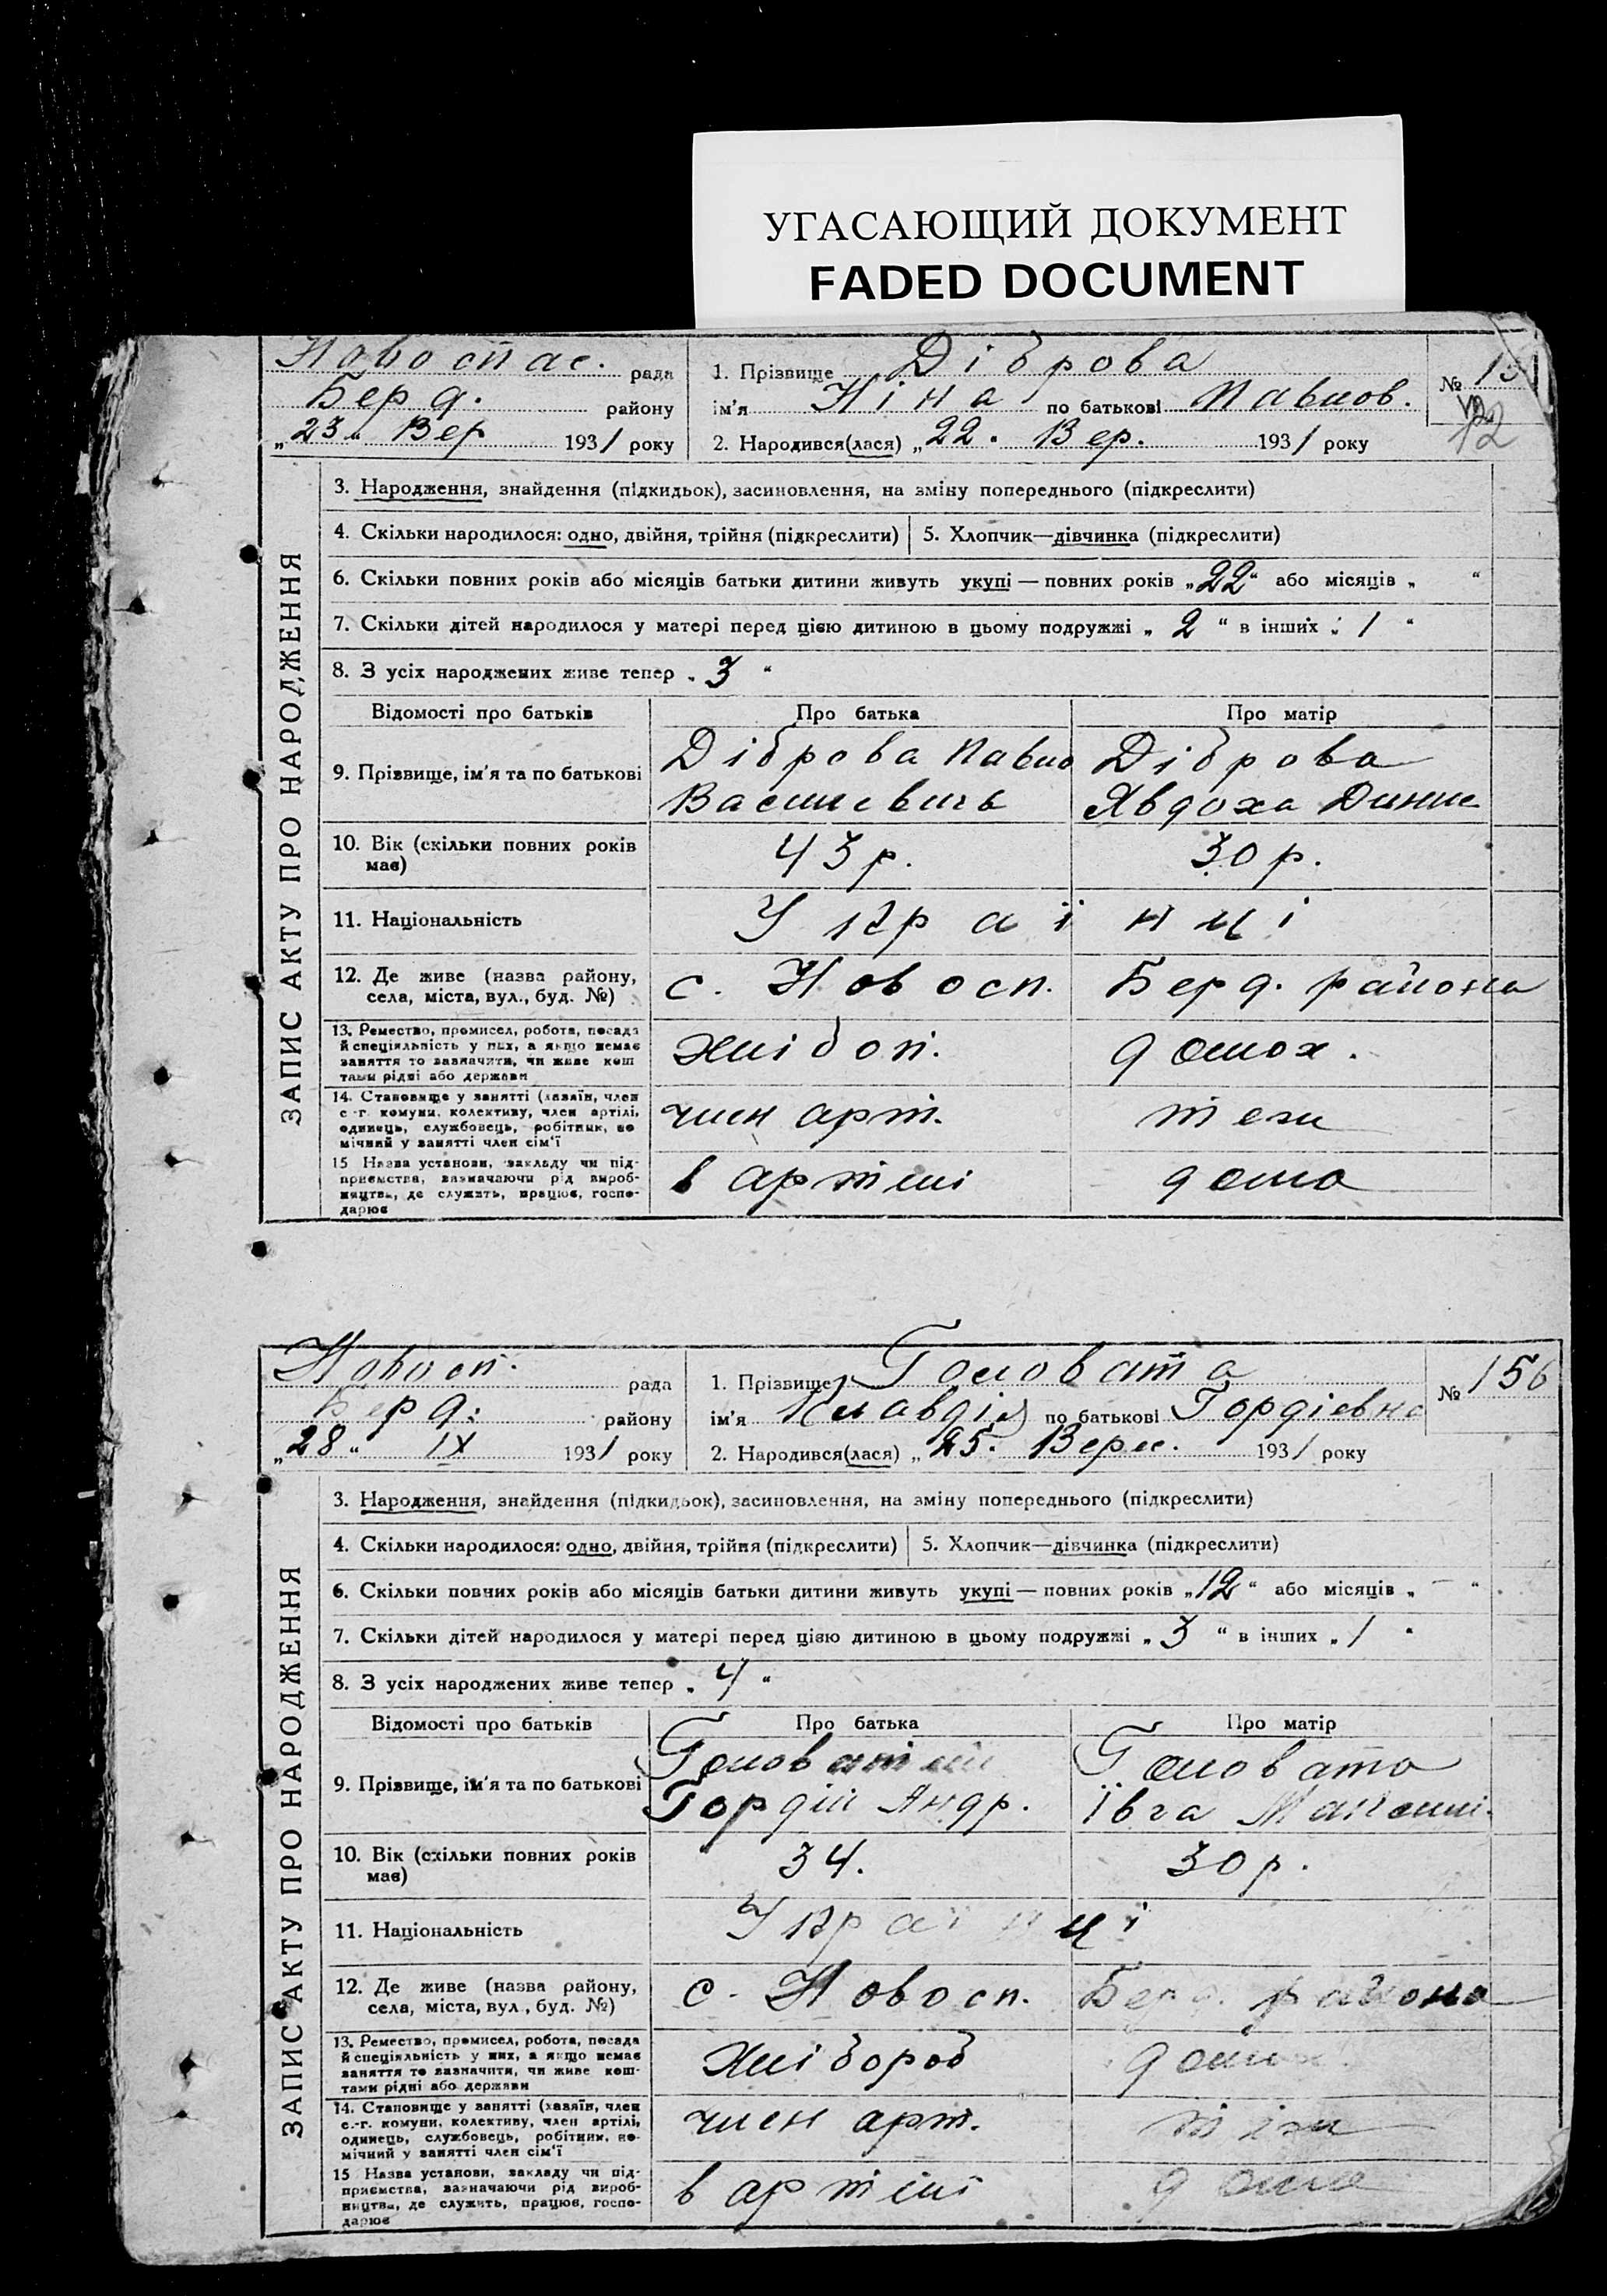 УГАСАЮЩИЙ ДОКУМЕНТ
FADED DOCUMENT
Новоспас. рада
Берд. району
„23“ Вер 1931 року
1. Прізвище Діброва
ім'я Ніна по батькові Павлов.
2. Народився(лася) „22. Вер. 1931 року
№ 15
ЗАПИС АКТУ ПРО НАРОДЖЕННЯ
3. Народження, знайдення (підкидьок), засиновлення, на зміну попереднього (підкреслити)
4. Скільки народилося: одно, двійня, трійня (підкреслити) 5. Хлопчик—дівчинка (підкреслити)
6. Скільки повних років або місяців батьки дитини живуть укупі — повних років „22“ або місяців „ “
7. Скільки дітей народилося у матері перед цією дитиною в цьому подружжі „ 2 “ в інших „ 1 “
8. З усіх народжених живе тепер „ 3 “
Відомості про батьків Про батька Про матір
9. Прізвище, ім'я та по батькові
Діброва Павло
Васильевичь
Діброва
Явдоха
10. Вік (скільки повних років
має)
43 р. 30 р.
11. Національність Українці
12. Де живе (назва району,
села, міста, вул., буд. №)
с. Новосп. Берд. района
13. Ремество, промисел, робота, посада
й спеціяльність у них, а якщо немає
заняття то зазначити, чи живе кош
тами рідні або держави
хлібоп. домох.
14. Становище у занятті (хазяїн, член
с-г. комуни, колективу, член артілі,
одинець, службовець, робітник, по
мічний у занятті член сім'ї
член арт.
15 Назва установи, закладу чи під-
приємства, зазначаючи рід вироб-
ництва, де служить, працює, госпо-
дарює
в артілі дома
Новосп. рада
Берд. району
„28“ IX 1931 року
1. Прізвище Головата
ім'я Клавдія по батькові Гордіевна
2. Народився(лася) „25. Верес. 1931 року
№ 156
ЗАПИС АКТУ ПРО НАРОДЖЕННЯ
3. Народження, знайдення (підкидьок), засиновлення, на зміну попереднього (підкреслити)
4. Скільки народилося: одно, двійня, трійня (підкреслити) 5. Хлопчик—дівчинка (підкреслити)
6. Скільки повних років або місяців батьки дитини живуть укупі — повних років „12“ або місяців „ — “
7. Скільки дітей народилося у матері перед цією дитиною в цьому подружжі „ 3 “ в інших „ 1 “
8. З усіх народжених живе тепер „ 4 “
Відомості про батьків Про батька Про матір
9. Прізвище, ім'я та по батькові
Головатий
Гордій Андр.
Головата
Івга
10. Вік (скільки повних років
має)
34. 30 р.
11. Національність Українці
12. Де живе (назва району,
села, міста, вул., буд. №)
с. Новосп. Берд. района
13. Ремество, промисел, робота, посада
й спеціяльність у них, а якщо немає
заняття то зазначити, чи живе кош-
тами рідні або держави
хлібороб домох.
14. Становище у занятті (хазяїн, член
с.-г. комуни, колективу, член артілі,
одинець, службовець, робітник, по-
мічний у занятті член сім'ї
член арт.
15 Назва установи, закладу чи під-
приємства, зазначаючи рід вироб-
ництва, де служить, працює, госпо-
дарює
в артілі дома